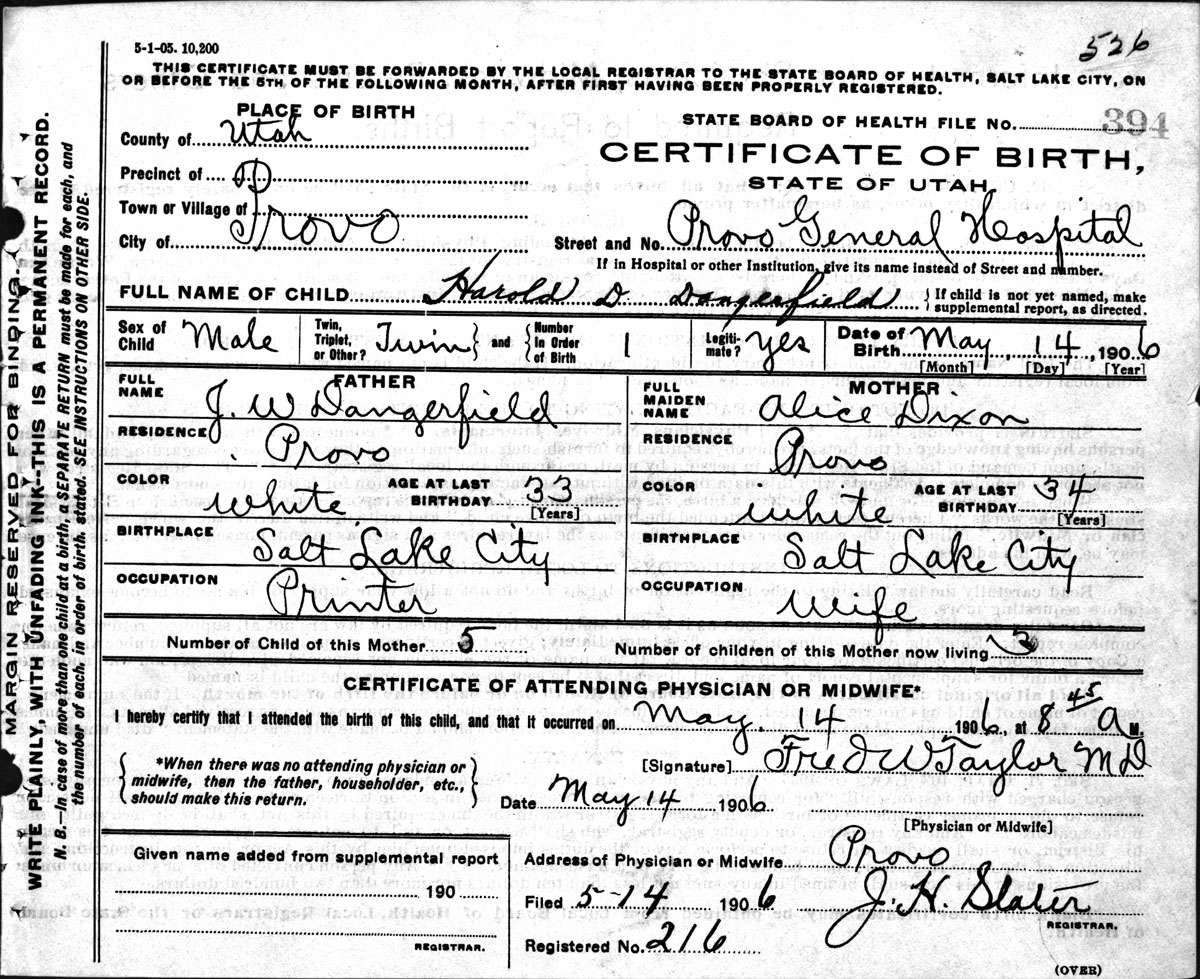 526
5-1-05. 10,200
THIS CERTIFICATE MUST BE FORWARDED BY THE LOCAL REGISTRAR TO THE STATE BOARD OF HEALTH, SALT LAKE CITY, ON
OR BEFORE THE 5TH OF THE FOLLOWING MONTH, AFTER FIRST HAVING BEEN PROPERLY REGISTERED.
PLACE OF BIRTH
STATE BOARD OF HEALTH FILE NO. 394
County of Utah
CERTIFICATE OF BIRTH,
STATE OF UTAH
Precinct of
Town or Village of
City of Provo
Street and No. Provo General Hospital
If in Hospital or other Institution, give its name instead of Street and number.
FULL NAME OF CHILD Harold D Dangerfield { If child is not yet named, make
supplemental report, as directed.
Sex of
Child Male
Twin,
Triplet,
or Other? Twin } and { Number
in Order
of Birth 1
Legiti-
mate? yes
Date of
Birth May 14, 1906
[Month] [Day] [Year]
FATHER
FULL
NAME J. W Dangerfield
RESIDENCE Provo
COLOR White AGE AT LAST
BIRTHDAY 33
[Years]
BIRTHPLACE Salt Lake City
OCCUPATION Printer
MOTHER
FULL
MAIDEN
NAME Alice Dixon
RESIDENCE Provo
COLOR White AGE AT LAST
BIRTHDAY 34
[Years]
BIRTHPLACE Salt Lake City
OCCUPATION Wife
Number of Child of this Mother 5 Number of children of this Mother now living 3
CERTIFICATE OF ATTENDING PHYSICIAN OR MIDWIFE*
I hereby certify that I attended the birth of this child, and that it occurred on May 14 1906, at 8 45 a M.
{ *When there was no attending physician or
midwife, then the father, householder, etc.,
should make this return. }
[Signature] Fred W Taylor MD
Date May 14 1906.
[Physician or Midwife]
Given name added from supplemental report
190
REGISTRAR.
Address of Physician or Midwife Provo
Filed 5-14 1906 J. H. Slater
REGISTRAR.
Registered No. 216
(OVER)
MARGIN RESERVED FOR BINDING.
WRITE PLAINLY, WITH UNFADING INK--THIS IS A PERMANENT RECORD.
N. B.—In case of more than one child at a birth, a SEPARATE RETURN must be made for each, and
the number of each, in order of birth, stated. SEE INSTRUCTIONS ON OTHER SIDE.